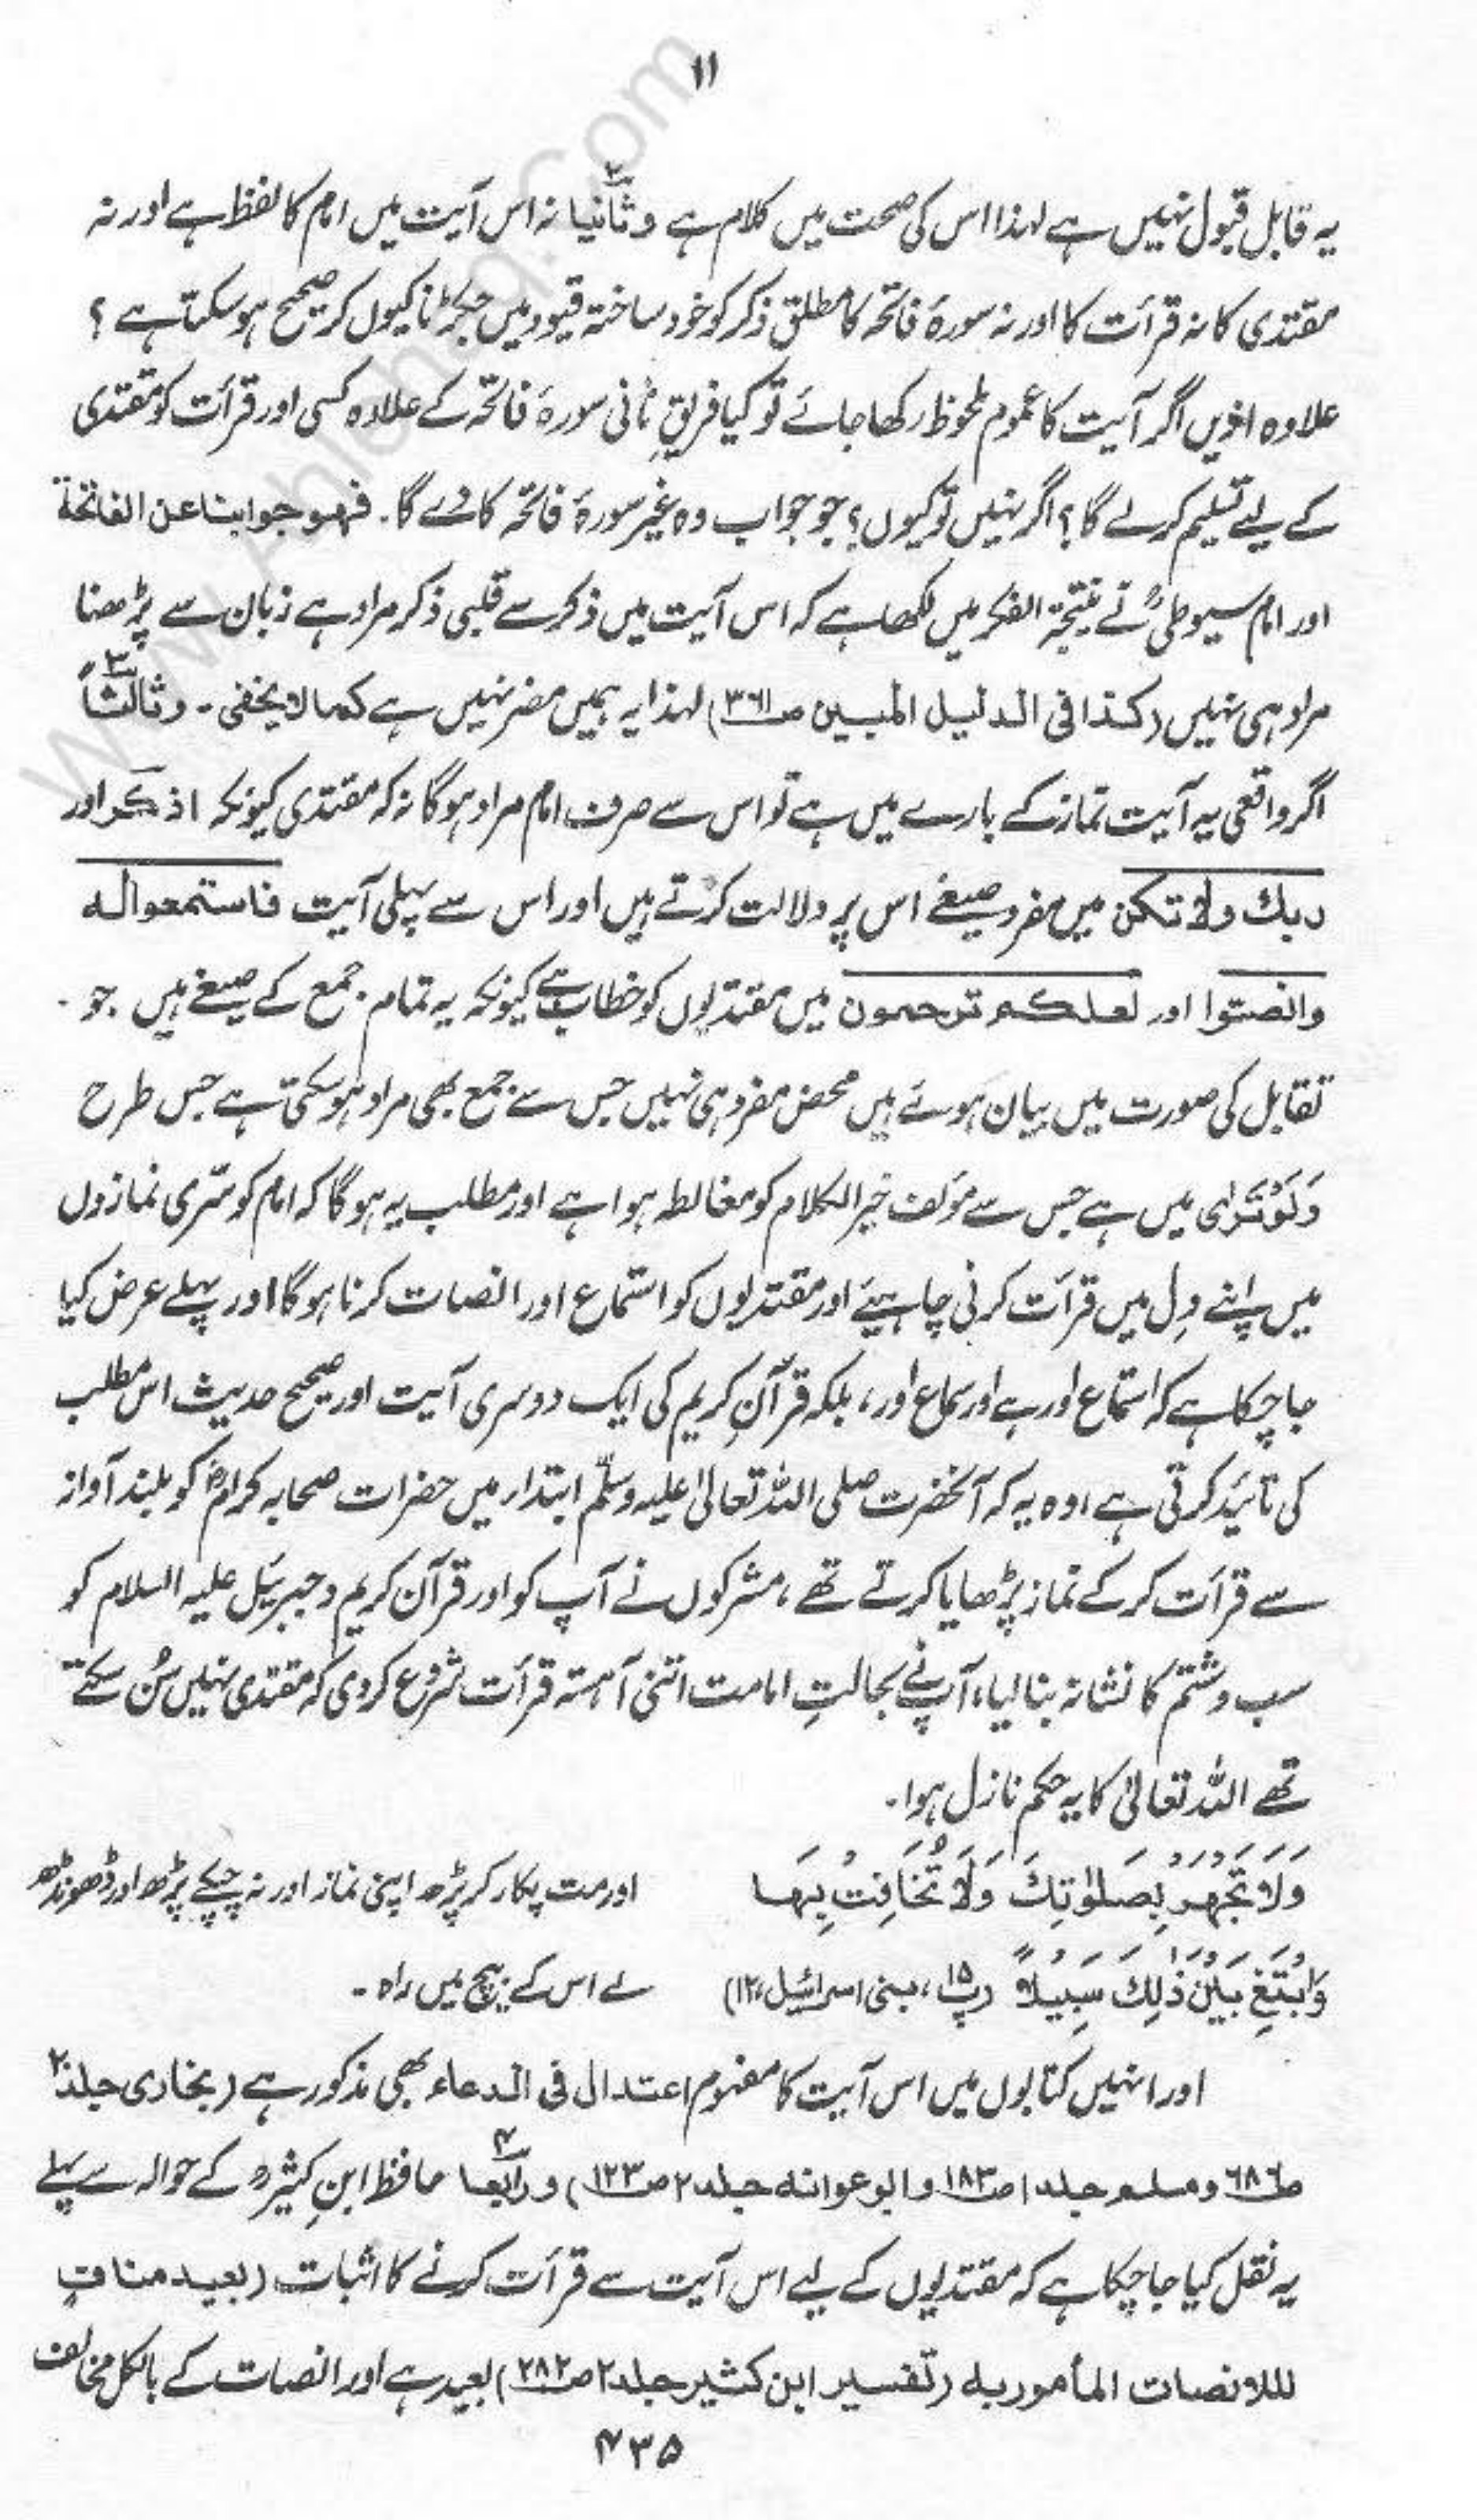 ۱۱
یہ قابل قبول نہیں ہے لہذا اس کی صحت میں کلام ہے وثانیا ۲ نہ اس آیت میں امام کا لفظ ہے اور نہ
مقتدی کا نہ قرأت کا اور نہ سورۂ فاتحہ کا مطلق ذکر کو خود ساختہ قیود میں جکڑنا کیوں کر صحیح ہو سکتا ہے ؟
علاوہ ازیں اگر آیت کا عموم ملحوظ رکھا جائے تو کیا فریقِ ثانی سورۂ فاتحہ کے علاوہ کسی اور قرأت کو مقتدی
کے لیے تسلیم کرلے گا؟ اگر نہیں تو کیوں؟ جو جواب وہ غیر سورۂ فاتحہ کا دے گا۔ فہو جوابنا عن الفاتحة
اور امام سیوطیؒ نے نتیجۃ الفکر میں لکھا ہے کہ اس آیت میں ذکر سے قلبی ذکر مراد ہے زبان سے پڑھنا
مراد ہی نہیں (کذا فی الدلیل المبین ص۳۶۱) لہذا یہ ہمیں مضر نہیں ہے کما لا یخفی۔ وثالثاً ۳
اگر واقعی یہ آیت نماز کے بارے میں ہے تو اس سے صرف امام مراد ہو گا نہ کہ مقتدی کیونکہ اذکر اور
ربك ولا تکن میں مفرد صیغے اس پر دلالت کرتے ہیں اور اس سے پہلی آیت فاستمعوا له
وانصتوا اور لعلکم ترحمون میں مقتدیوں کو خطاب ہے کیونکہ یہ تمام جمع کے صیغے ہیں جو
تقابل کی صورت میں بیان ہوئے ہیں محض مفرد ہی نہیں جس سے جمع بھی مراد ہو سکتی ہے جس طرح
وَلَوْتَرٰی میں ہے جس سے مؤلف خیر الکلام کو مغالطہ ہوا ہے اور مطلب یہ ہو گا کہ امام کو سرّی نمازوں
میں اپنے دِل میں قرأت کرنی چاہیئے اور مقتدیوں کو استماع اور انصات کرنا ہو گا اور پہلے عرض کیا
جا چکا ہے کہ استماع اور ہے اور سماع اور، بلکہ قرآنِ کریم کی ایک دوسری آیت اور صحیح حدیث اس مطلب
کی تائید کرتی ہے اوہ یہ کہ آنحضرت صلی اللہ تعالیٰ علیہ وسلّم ابتدار میں حضرات صحابہ کرامؓ کو بلند آواز
سے قرأت کر کے نماز پڑھایا کرتے تھے ، مشرکوں نے آپ کو اور قرآن کریم و جبرئیل علیہ السلام کو
سب وشتم کا نشانہ بنا لیا، آپ نے بحالتِ امامت اتنی آہستہ قرأت شروع کر دی کہ مقتدی نہیں سُن سکتے
تھے اللہ تعالیٰ کا یہ حکم نازل ہوا۔
وَلَا تَجْهَرْ بِصَلٰوتِكَ وَلَا تُخَافِتْ بِهَا
وَابْتَغِ بَیْنَ ذٰلِكَ سَبِیْلاً (پ۱۵ ، بنی اسرائیل،۱۲)
اور مت پکار کر پڑھ اپنی نماز اور نہ چپکے پڑھ اور ڈھونڈھ
لے اس کے بیچ میں راہ ۔
اور انہیں کتابوں میں اس آیت کا مفہوم اعتدال فی الدعاء بھی مذکور ہے (بخاری جلد۲
ص۶۸۶ ومسلم جلد۱ ص۱۸۳ و ابوعوانه جلد۲ ص۱۲۳) ورابعا ۴ حافظ ابنِ کثیرؒ کے حوالہ سے پہلے
یہ نقل کیا جا چکا ہے کہ مقتدیوں کے لیے اس آیت سے قرأت کرنے کا اثبات (بعید منافٍ
للانصات المأمور به (تفسیر ابن کثیر جلد۲ ص۲۸۲) بعید ہے اور انصات کے بالکل مخالف
۴۳۵
www.Ahlehaq.Com